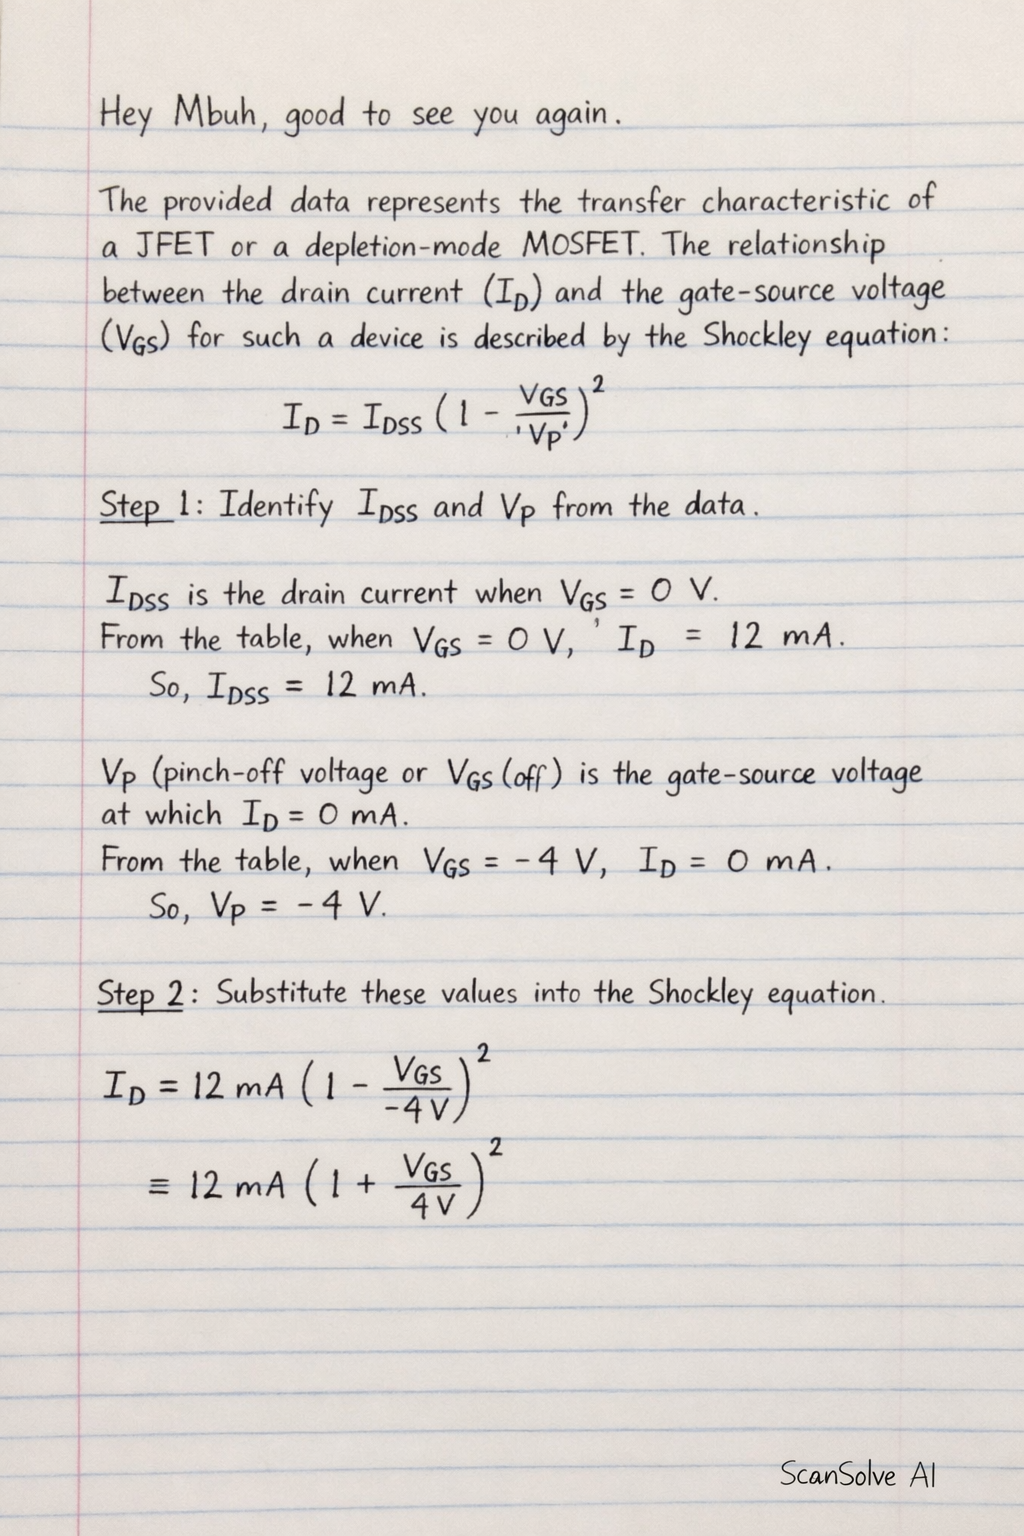 Hey Mbuh, good to see you again.
The provided data represents the transfer characteristic of
a JFET or a depletion-mode MOSFET. The relationship
between the drain current (I_D) and the gate-source voltage
(V_GS) for such a device is described by the Shockley equation:
I_D = I_DSS (1 - V_GS / 'V_p')^2
Step 1: Identify I_DSS and V_p from the data.
I_DSS is the drain current when V_GS = 0 V.
From the table, when V_GS = 0 V, ' I_D = 12 mA.
So, I_DSS = 12 mA.
V_p (pinch-off voltage or V_GS(off) is the gate-source voltage
at which I_D = 0 mA.
From the table, when V_GS = -4 V, I_D = 0 mA.
So, V_p = -4 V.
Step 2: Substitute these values into the Shockley equation.
I_D = 12 mA (1 - V_GS / -4 V)^2
≡ 12 mA (1 + V_GS / 4 V)^2
ScanSolve AI